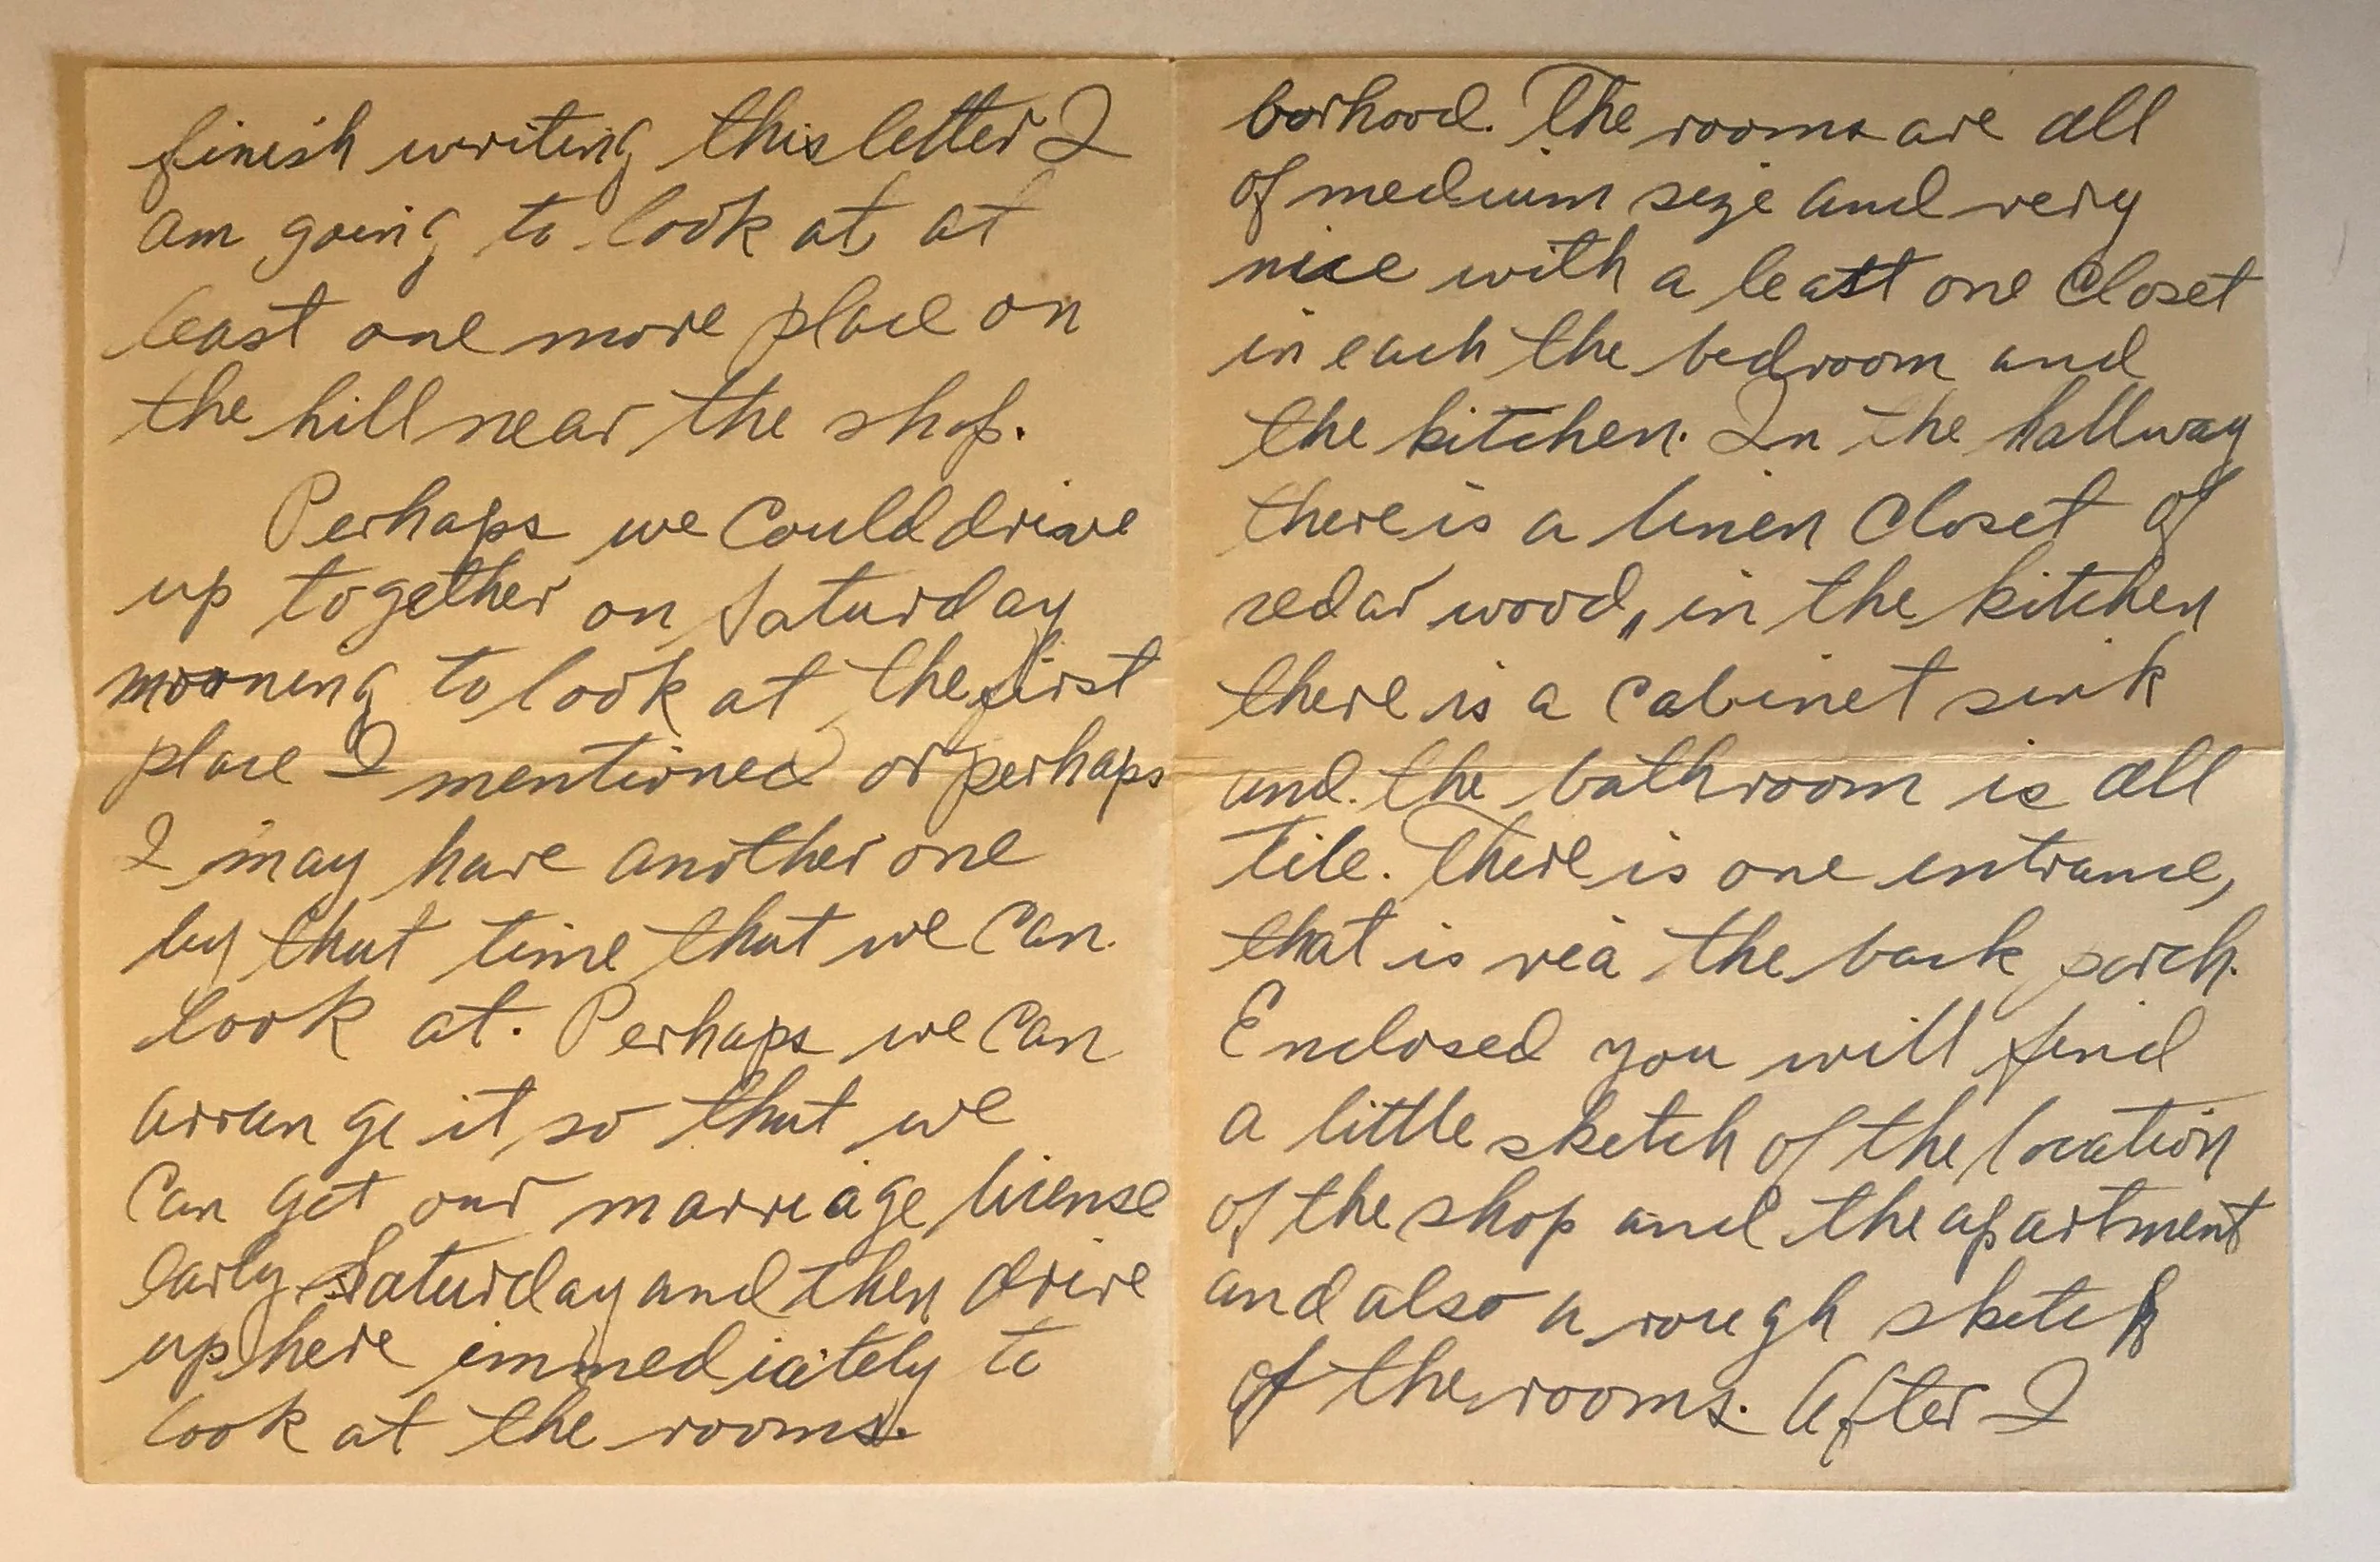 finish writing this letter I
am going to look at, at
least one more place on
the hill near the shop.
Perhaps we could drive
up together on Saturday
morning to look at the first
place I mentioned or perhaps
I may have another one
by that time that we can
look at. Perhaps we can
arrange it so that we
can get our marriage license
early Saturday and then drive
up here immediately to
look at the rooms.
borhood. The rooms are all
of medium size and very
nice with a least one closet
in each the bedroom and
the kitchen. In the hallway
there is a linen closet of
cedar wood, in the kitchen
there is a cabinet sink
and the bathroom is all
tile. There is one entrance,
that is via the back porch.
Enclosed you will find
a little sketch of the location
of the shop and the apartment
and also a rough sketch
of the rooms. After I